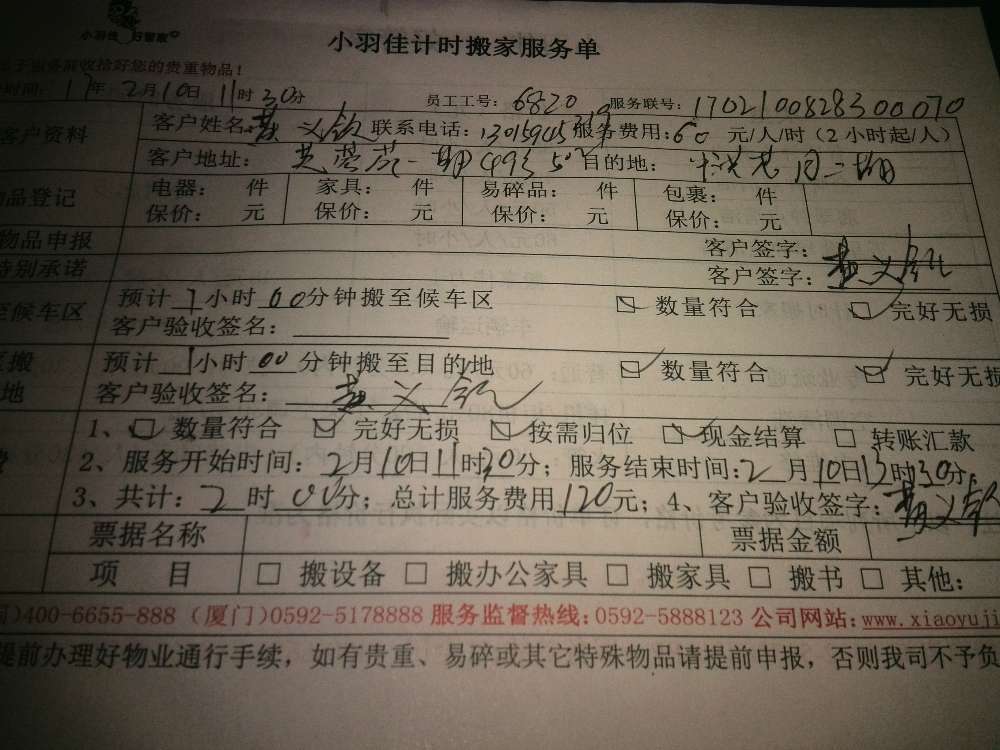 小羽佳 好管家
小羽佳计时搬家服务单
服务前收拾好您的贵重物品！
时间：17年2月10日11时30分 员工工号：6820 服务联号：1702100828300070
客户资料 客户姓名： 义钦 联系电话： 服务费用：60元/人/时（2小时起/人）
客户地址： 一期 目的地： 二期
物品登记 电器： 件 家具： 件 易碎品： 件 包裹： 件
保价： 元 保价： 元 保价： 元 保价： 元
物品申报 客户签字：
特别承诺 客户签字： 义钦
至候车区 预计1小时00分钟搬至候车区 ☑ 数量符合 ☑ 完好无损
客户验收签名：
至搬 预计1小时00分钟搬至目的地 ☑ 数量符合 ☑ 完好无损
地 客户验收签名： 义钦
1、☑ 数量符合 ☑ 完好无损 ☑ 按需归位 ☑ 现金结算 □ 转账汇款
2、服务开始时间：2月10日11时30分；服务结束时间：2月10日13时30分；
3、共计：2时00分；总计服务费用120元；4、客户验收签字： 义钦
票据名称 票据金额
项 目 □ 搬设备 □ 搬办公家具 □ 搬家具 □ 搬书 □ 其他：
)400-6655-888（厦门)0592-5178888 服务监督热线：0592-5888123 公司网站：www.xiaoyuji
提前办理好物业通行手续，如有贵重、易碎或其它特殊物品请提前申报，否则我司不予负